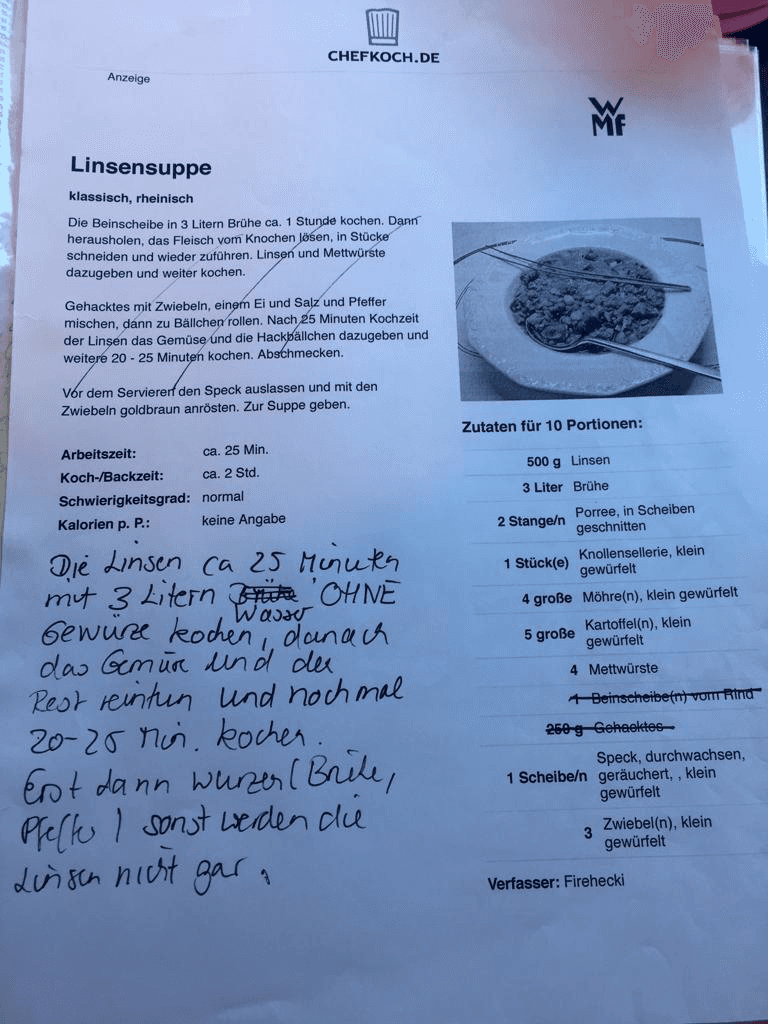 CHEFKOCH.DE
Anzeige
WMF
Linsensuppe
klassisch, rheinisch
Die Beinscheibe in 3 Litern Brühe ca. 1 Stunde kochen. Dann
herausholen, das Fleisch vom Knochen lösen, in Stücke
schneiden und wieder zuführen. Linsen und Mettwürste
dazugeben und weiter kochen.
Gehacktes mit Zwiebeln, einem Ei und Salz und Pfeffer
mischen, dann zu Bällchen rollen. Nach 25 Minuten Kochzeit
der Linsen das Gemüse und die Hackbällchen dazugeben und
weitere 20 - 25 Minuten kochen. Abschmecken.
Vor dem Servieren den Speck auslassen und mit den
Zwiebeln goldbraun anrösten. Zur Suppe geben.
Arbeitszeit: ca. 25 Min.
Koch-/Backzeit: ca. 2 Std.
Schwierigkeitsgrad: normal
Kalorien p. P.: keine Angabe
Die Linsen ca 25 Minuten
mit 3 Litern Brühe OHNE
Wasser
Gewürze kochen, danach
das Gemüse und den
Rest reintun und nochmal
20-25 Min. kochen.
Erst dann würzen (Brühe,
Pfeffer) sonst werden die
Linsen nicht gar.
Zutaten für 10 Portionen:
500 g Linsen
3 Liter Brühe
2 Stange/n Porree, in Scheiben
geschnitten
1 Stück(e) Knollensellerie, klein
gewürfelt
4 große Möhre(n), klein gewürfelt
5 große Kartoffel(n), klein
gewürfelt
4 Mettwürste
1 Beinscheibe(n) vom Rind
250 g Gehacktes
1 Scheibe/n Speck, durchwachsen,
geräuchert, , klein
gewürfelt
3 Zwiebel(n), klein
gewürfelt
Verfasser: Firehecki